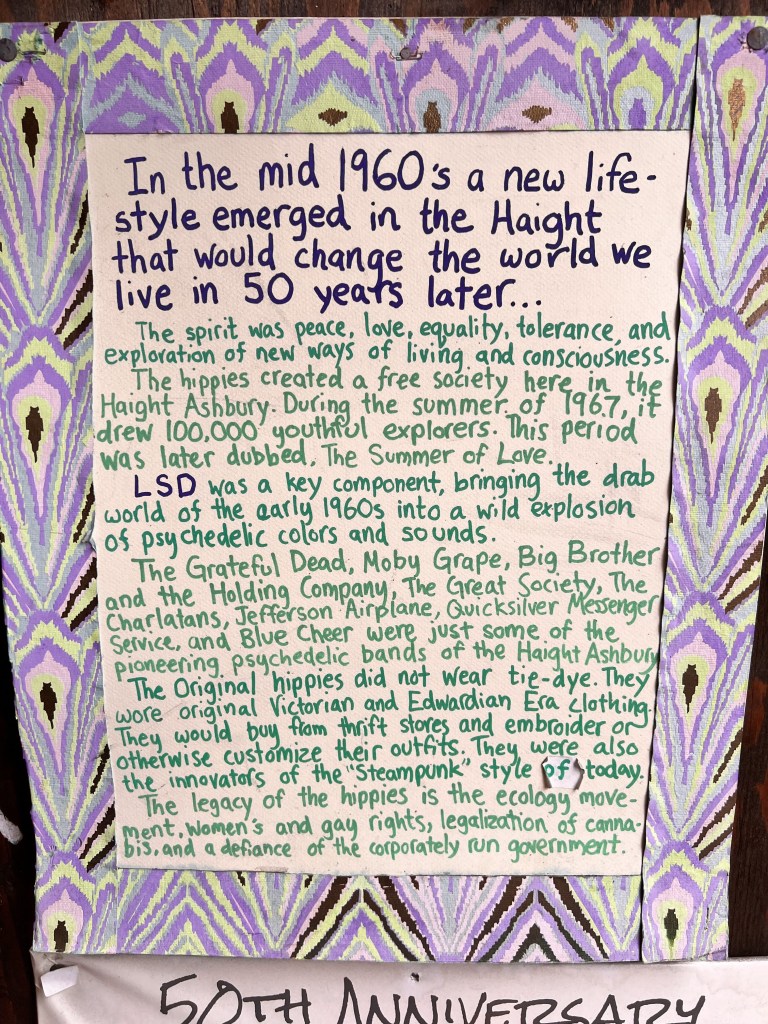 In the mid 1960's a new life-
style emerged in the Haight
that would change the world we
live in 50 years later...
The spirit was peace, love, equality, tolerance, and
exploration of new ways of living and consciousness.
The hippies created a free society here in the
Haight Ashbury. During the summer of 1967, it
drew 100,000 youthful explorers. This period
was later dubbed, The Summer of Love.
LSD was a key component, bringing the drab
world of the early 1960s into a wild explosion
of psychedelic colors and sounds.
The Grateful Dead, Moby Grape, Big Brother
and the Holding Company, The Great Society, The
Charlatans, Jefferson Airplane, Quicksilver Messenger
Service, and Blue Cheer were just some of the
pioneering psychedelic bands of the Haight Ashbury
The Original hippies did not wear tie-dye. They
wore original Victorian and Edwardian Era clothing.
They would buy from thrift stores and embroider or
otherwise customize their outfits. They were also
the innovators of the "Steampunk" style of today.
The legacy of the hippies is the ecology move-
ment, women's and gay rights, legalization of canna-
bis, and a defiance of the corporately run government.
50TH ANNIVERSARY